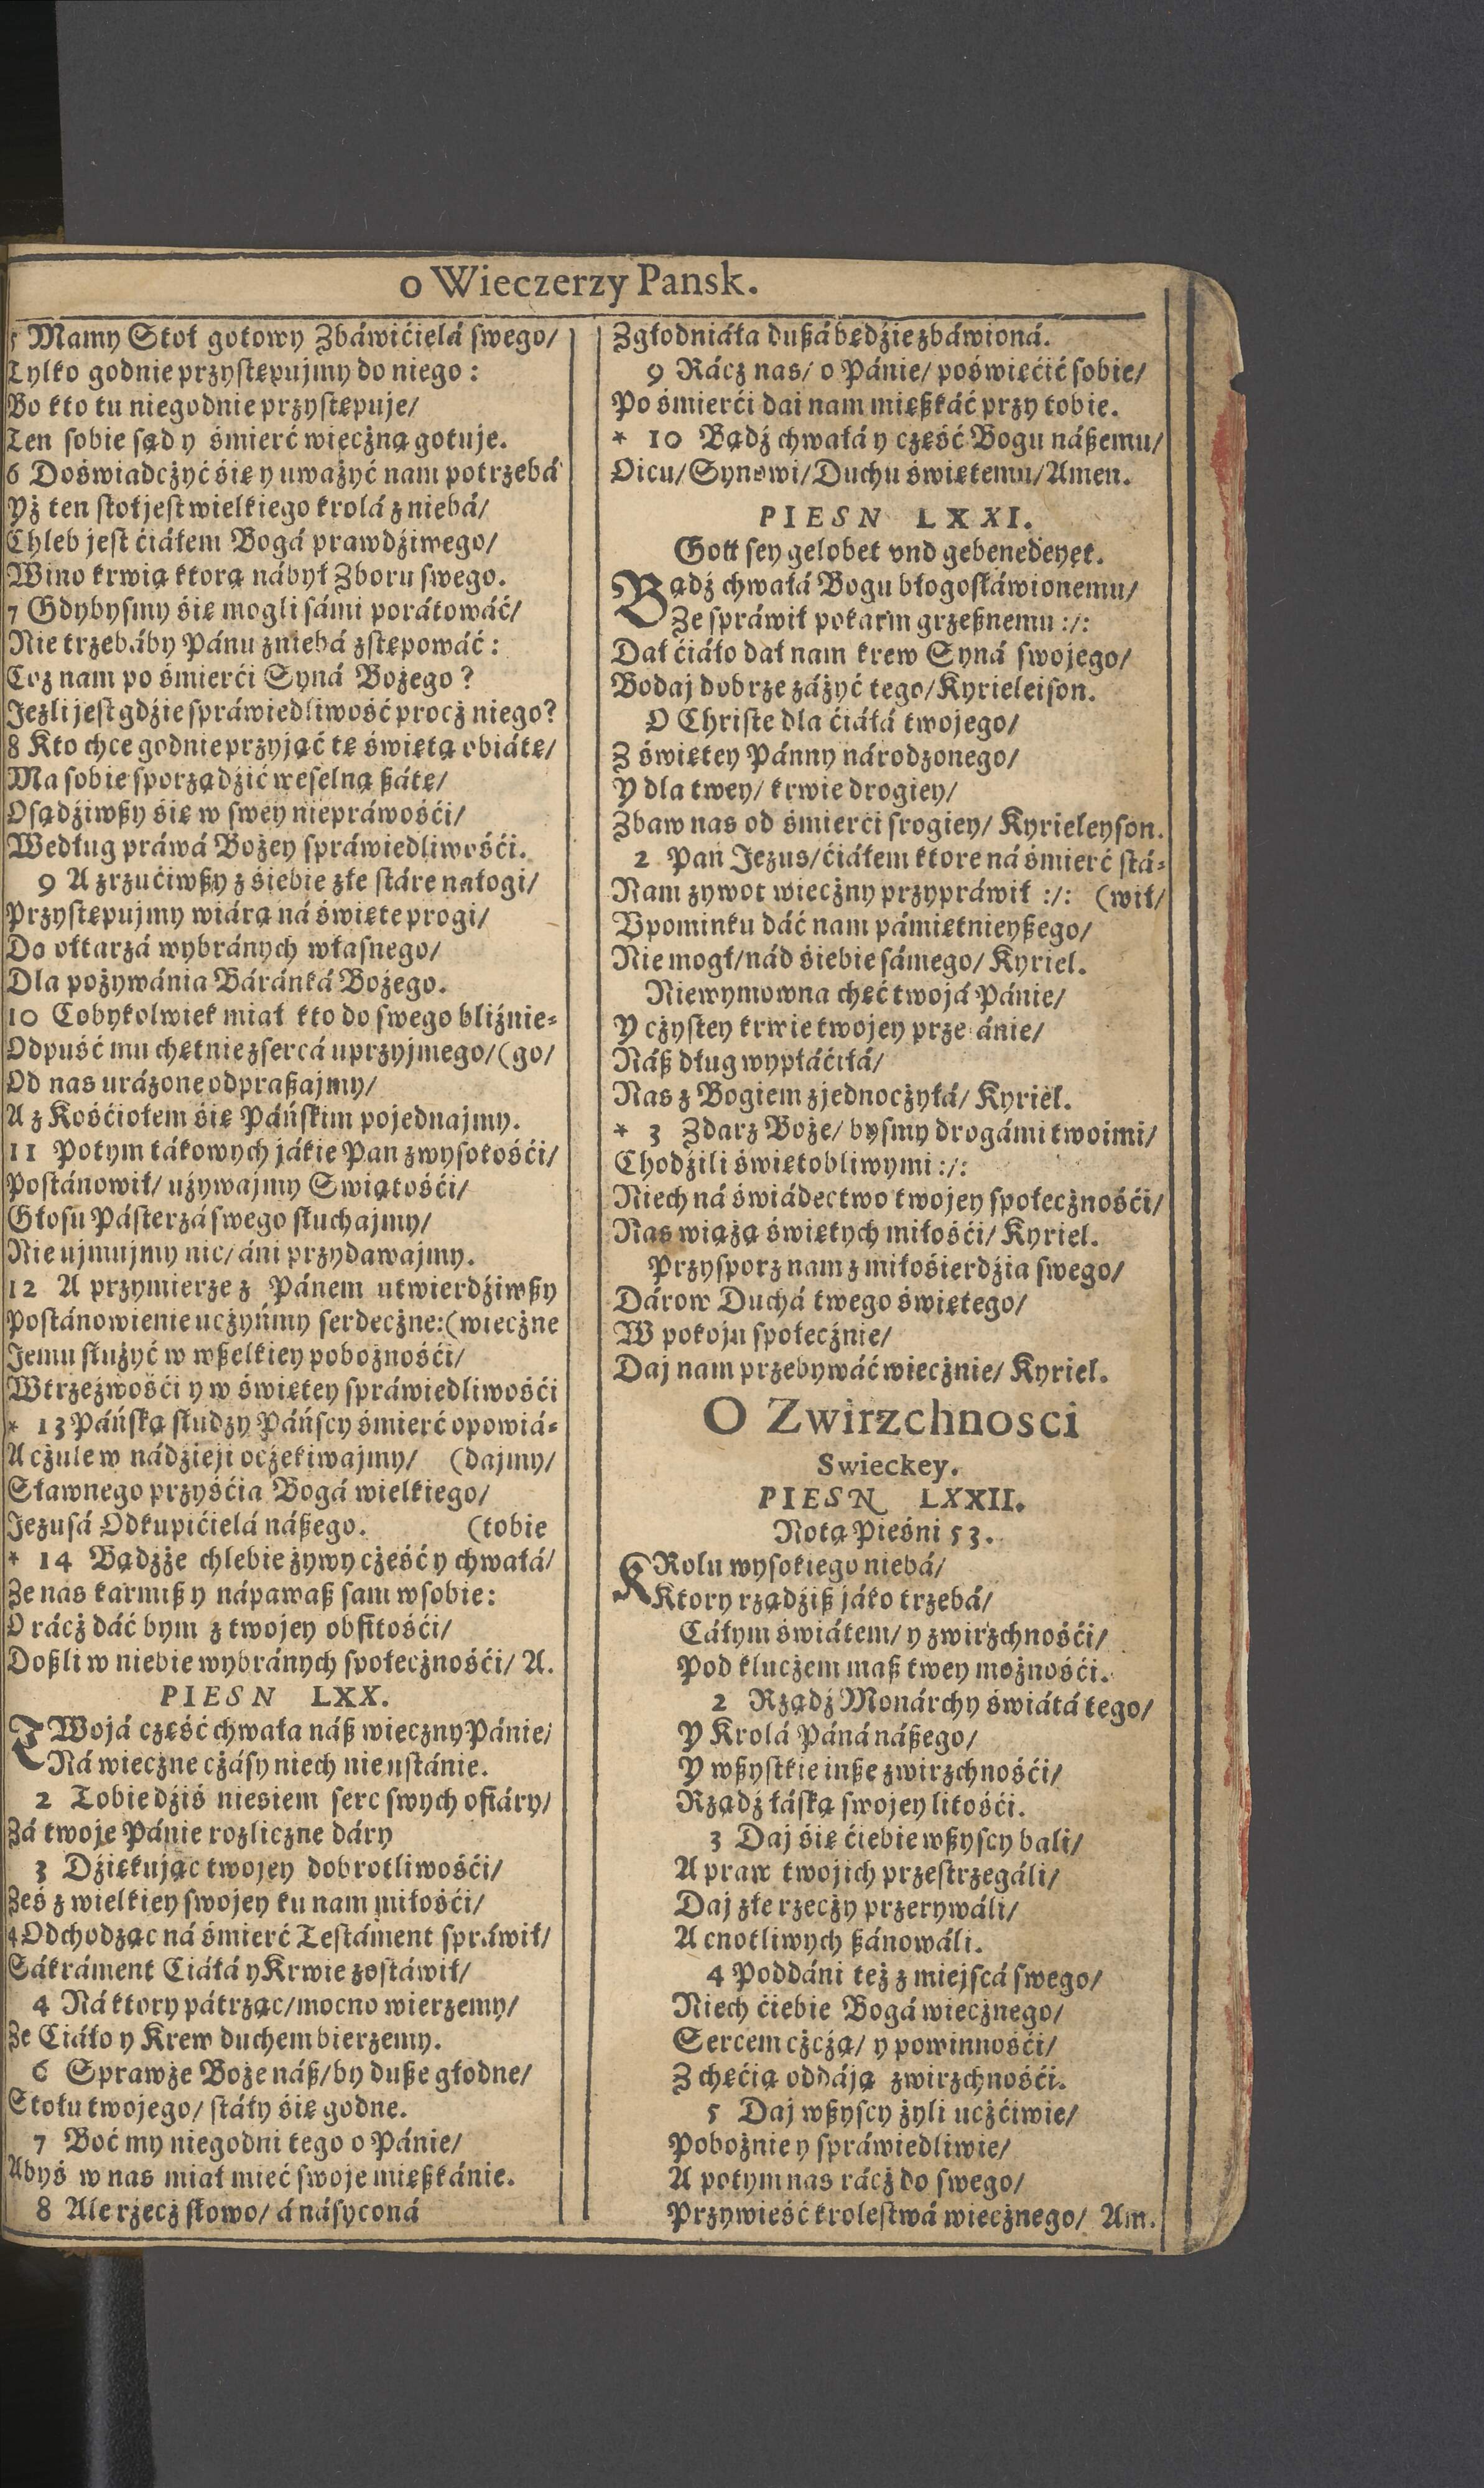 o Wieczerzy Pansk.
5 Mamy Stoł gotowy Zbáwićielá swego/
Tylko godnie przystępujmy do niego:
Bo kto tu niegodnie przystępuje/
Ten sobie sąd y śmierć wieczną gotuje.
6 Doświadcżyć się y uważyć nam potrzebá
Yż ten stoł jest wielkiego krolá z niebá/
Chleb jest ćiáłem Bogá prawdźiwego/
Wino krwią ktorą nábył Zboru swego.
7 Gdybysmy się mogli sámi porátowáć/
Nie trzebáby Pánu z niebá zstępowáć:
Coz nam po śmierći Syná Bożego?
Jezli jest gdźie spráwiedliwość procż niego?
8 Kto chce godnie przyjąć tę świętą obiátę/
Ma sobie sporządźić weselną ßátę/
Osądźiwßy się w swey niepráwośći/
Według práwá Bożey spráwiedliwośći.
9 A zrzućiwßy z śiebie złe stáre nałogi/
Przystępujmy wiárą ná święte progi/
Do ołtarzá wybránych własnego/
Dla pożywánia Báránká Bożego.
10 Cobykolwiek miał kto do swego bliźnie-
Odpuść mu chętnie z sercá uprzyjmego/(go/
Od nas urázone odpraßajmy/
A z Kośćiołem się Páńskim pojednajmy.
11 Potym tákowych jákie Pan z wysokośći/
Postánowił/ używajmy Swiątośći/
Głosu Pásterzá swego słuchajmy/
Nie ujmujmy nic/ áni przydawajmy.
12 A przymierze z Pánem utwierdźiwßy
Postánowienie ucżyńmy serdecżne:(wiecżne
Jemu służyć w wßelkiey pobożnośći/
W trzeźwośći y w świętey spráwiedliwośći
* 13 Páńską słudzy Páńscy śmierć opowiá-
A cżule w nádźieji ocżekiwajmy/ (dajmy/
Sławnego przyśćia Bogá wielkiego/
Jezusá Odkupićielá náßego. (tobie
* 14 Bądźże chlebie żywy cżeść y chwałá/
Ze nas karmiß y nápawaß sam w sobie:
O rácż dáć bym z twojey obfitośći/
Doßli w niebie wybránych społecżnośći/ A.
PIESN LXX.
TWojá część chwała náß wieczny Pánie/
Ná wieczne cżásy niech nie ustánie.
2 Tobie dźiś niesiem serc swych ofiáry/
Zá twoje Pánie rozliczne dáry
3 Dźiękując twojey dobrotliwośći/
Ześ z wielkiey swojey ku nam miłośći/
4 Odchodząc ná śmierć Testáment spráwił/
Sákráment Ciáłá y Krwie zostáwił/
4 Ná ktory pátrząc/ mocno wierzemy/
Ze Ciáło y Krew duchem bierzemy.
6 Sprawże Boże náß/ by duße głodne/
Stołu twojego/ stáły się godne.
7 Boć my niegodni tego o Pánie/
Abyś w nas miał mieć swoje mießkánie.
8 Ale rżecż słowo/ á násyconá
Zgłodniáła dußá będźie zbáwioná.
9 Rácz nas/ o Pánie/ poświęćić sobie/
Po śmierći dai nam mießkáć przy tobie.
* 10 Bądź chwałá y część Bogu náßemu/
Oicu/ Synowi/ Duchu świętemu/ Amen.
PIESN LXXI.
Gott sey gelobet vnd gebenedeyet.
Bądź chwałá Bogu błogosłáwionemu/
Ze spráwił pokarm grzeßnemu :/:
Dał ćiáło dał nam krew Syná swojego/
Bodaj dobrze záżyć tego/ Kyrieleison.
O Christe dla ćiáłá twojego/
Z świętey Pánny národzonego/
Y dla twey/ krwie drogiey/
Zbaw nas od śmierći srogiey/ Kyrieleyson.
2 Pan Jezus/ ćiáłem ktore ná śmierć stá-
Nam zywot wiecżny przypráwił :/: (wił/
Vpominku dáć nam pámiętnieyßego/
Nie mogł/ nád śiebie sámego/ Kyriel.
Niewymowna chęć twojá Pánie/
Y cżystey krwie twojey prze ánie/
Náß dług wypłáćiłá/
Nas z Bogiem zjednocżyłá/ Kyriel.
* 3 Zdarz Boże/ bysmy drogámi twoimi/
Chodźili świętobliwymi :/:
Niech ná świádectwo twojey społecżnośći/
Nas wiążą świętych miłośći/ Kyriel.
Przysporz nam z miłosierdźia swego/
Dárow Duchá twego świętego/
W pokoju społecżnie/
Daj nam przebywáć wiecżnie/ Kyriel.
O Zwirzchnosci
Swieckey.
PIESN LXXII.
Notą Pieśni 53.
KRolu wysokiego niebá/
Ktory rządźiß jáko trzebá/
Cáłym świátem/ y zwirzchnośći/
Pod klucżem maß twey możnośći.
2 Rządź Monárchy świátá tego/
Y Krolá Páná náßego/
Y wßystkie inße zwirzchnośći/
Rządź łáską swojey litośći.
3 Daj się ćiebie wßyscy bali/
A praw twojich przestrzegáli/
Daj złe rzecży przerywáli/
A cnotliwych ßánowáli.
4 Poddáni też z miejscá swego/
Niech ćiebie Bogá wiecżnego/
Sercem cżcżą/ y powinnośći/
Z chęćią oddáją zwirzchnośći.
5 Daj wßyscy żyli ucżćiwie/
Pobożnie y spráwiedliwie/
A potym nas rácż do swego/
Przywieść krolestwá wiecżnego/ Am.